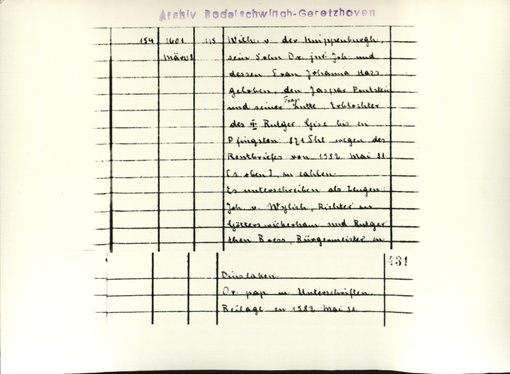 Archiv Bodelschwingh-Geretzhoven
154 1601 Wilh. v. der Knippenburgh,
März 8 sein Sohn Dr. jur. Joh. und
dessen Frau Johanna Hass
geloben, den Jaspar
und seiner Frau Jutte, Erbtochter
des Rutger bis zu
Pfingsten 871 Thl. wegen des
Rentbriefes von 1582 Mai 31
(s. oben) zu zahlen.
Es unterschreiben als Zeugen:
Joh. v. Wylich, Richter zu
Götterswickerham und Rutger
then Boess, Bürgermeister zu
431
Dinslaken.
Or. pap. m. Unterschriften.
Beilage zu 1582 Mai 31.